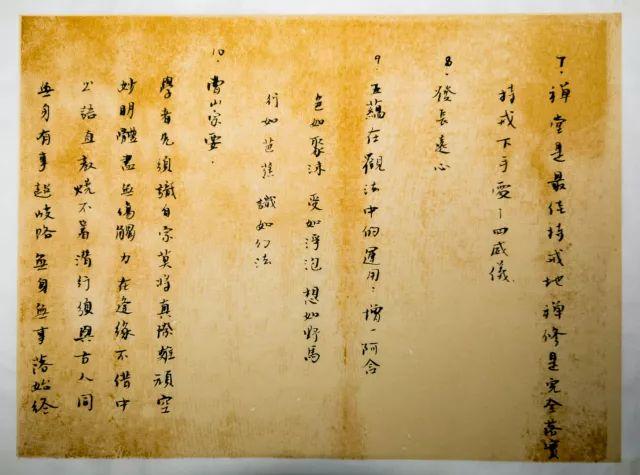 7. 禪堂是最佳持戒地 禪修是完全落實
持戒下手處：四威儀
8. 發長遠心
9 五蘊在觀法中的運用：增一阿含
色如聚沫 受如浮泡 想如野馬
行如芭蕉 識如幻法
10. 曹山宗要.
學者先須識自宗莫將真際雜頑空
妙明體盡無傷觸力在逢緣不借中
出語直教燒不著潛行須與古人同
無身有事超岐路無身無事落始終